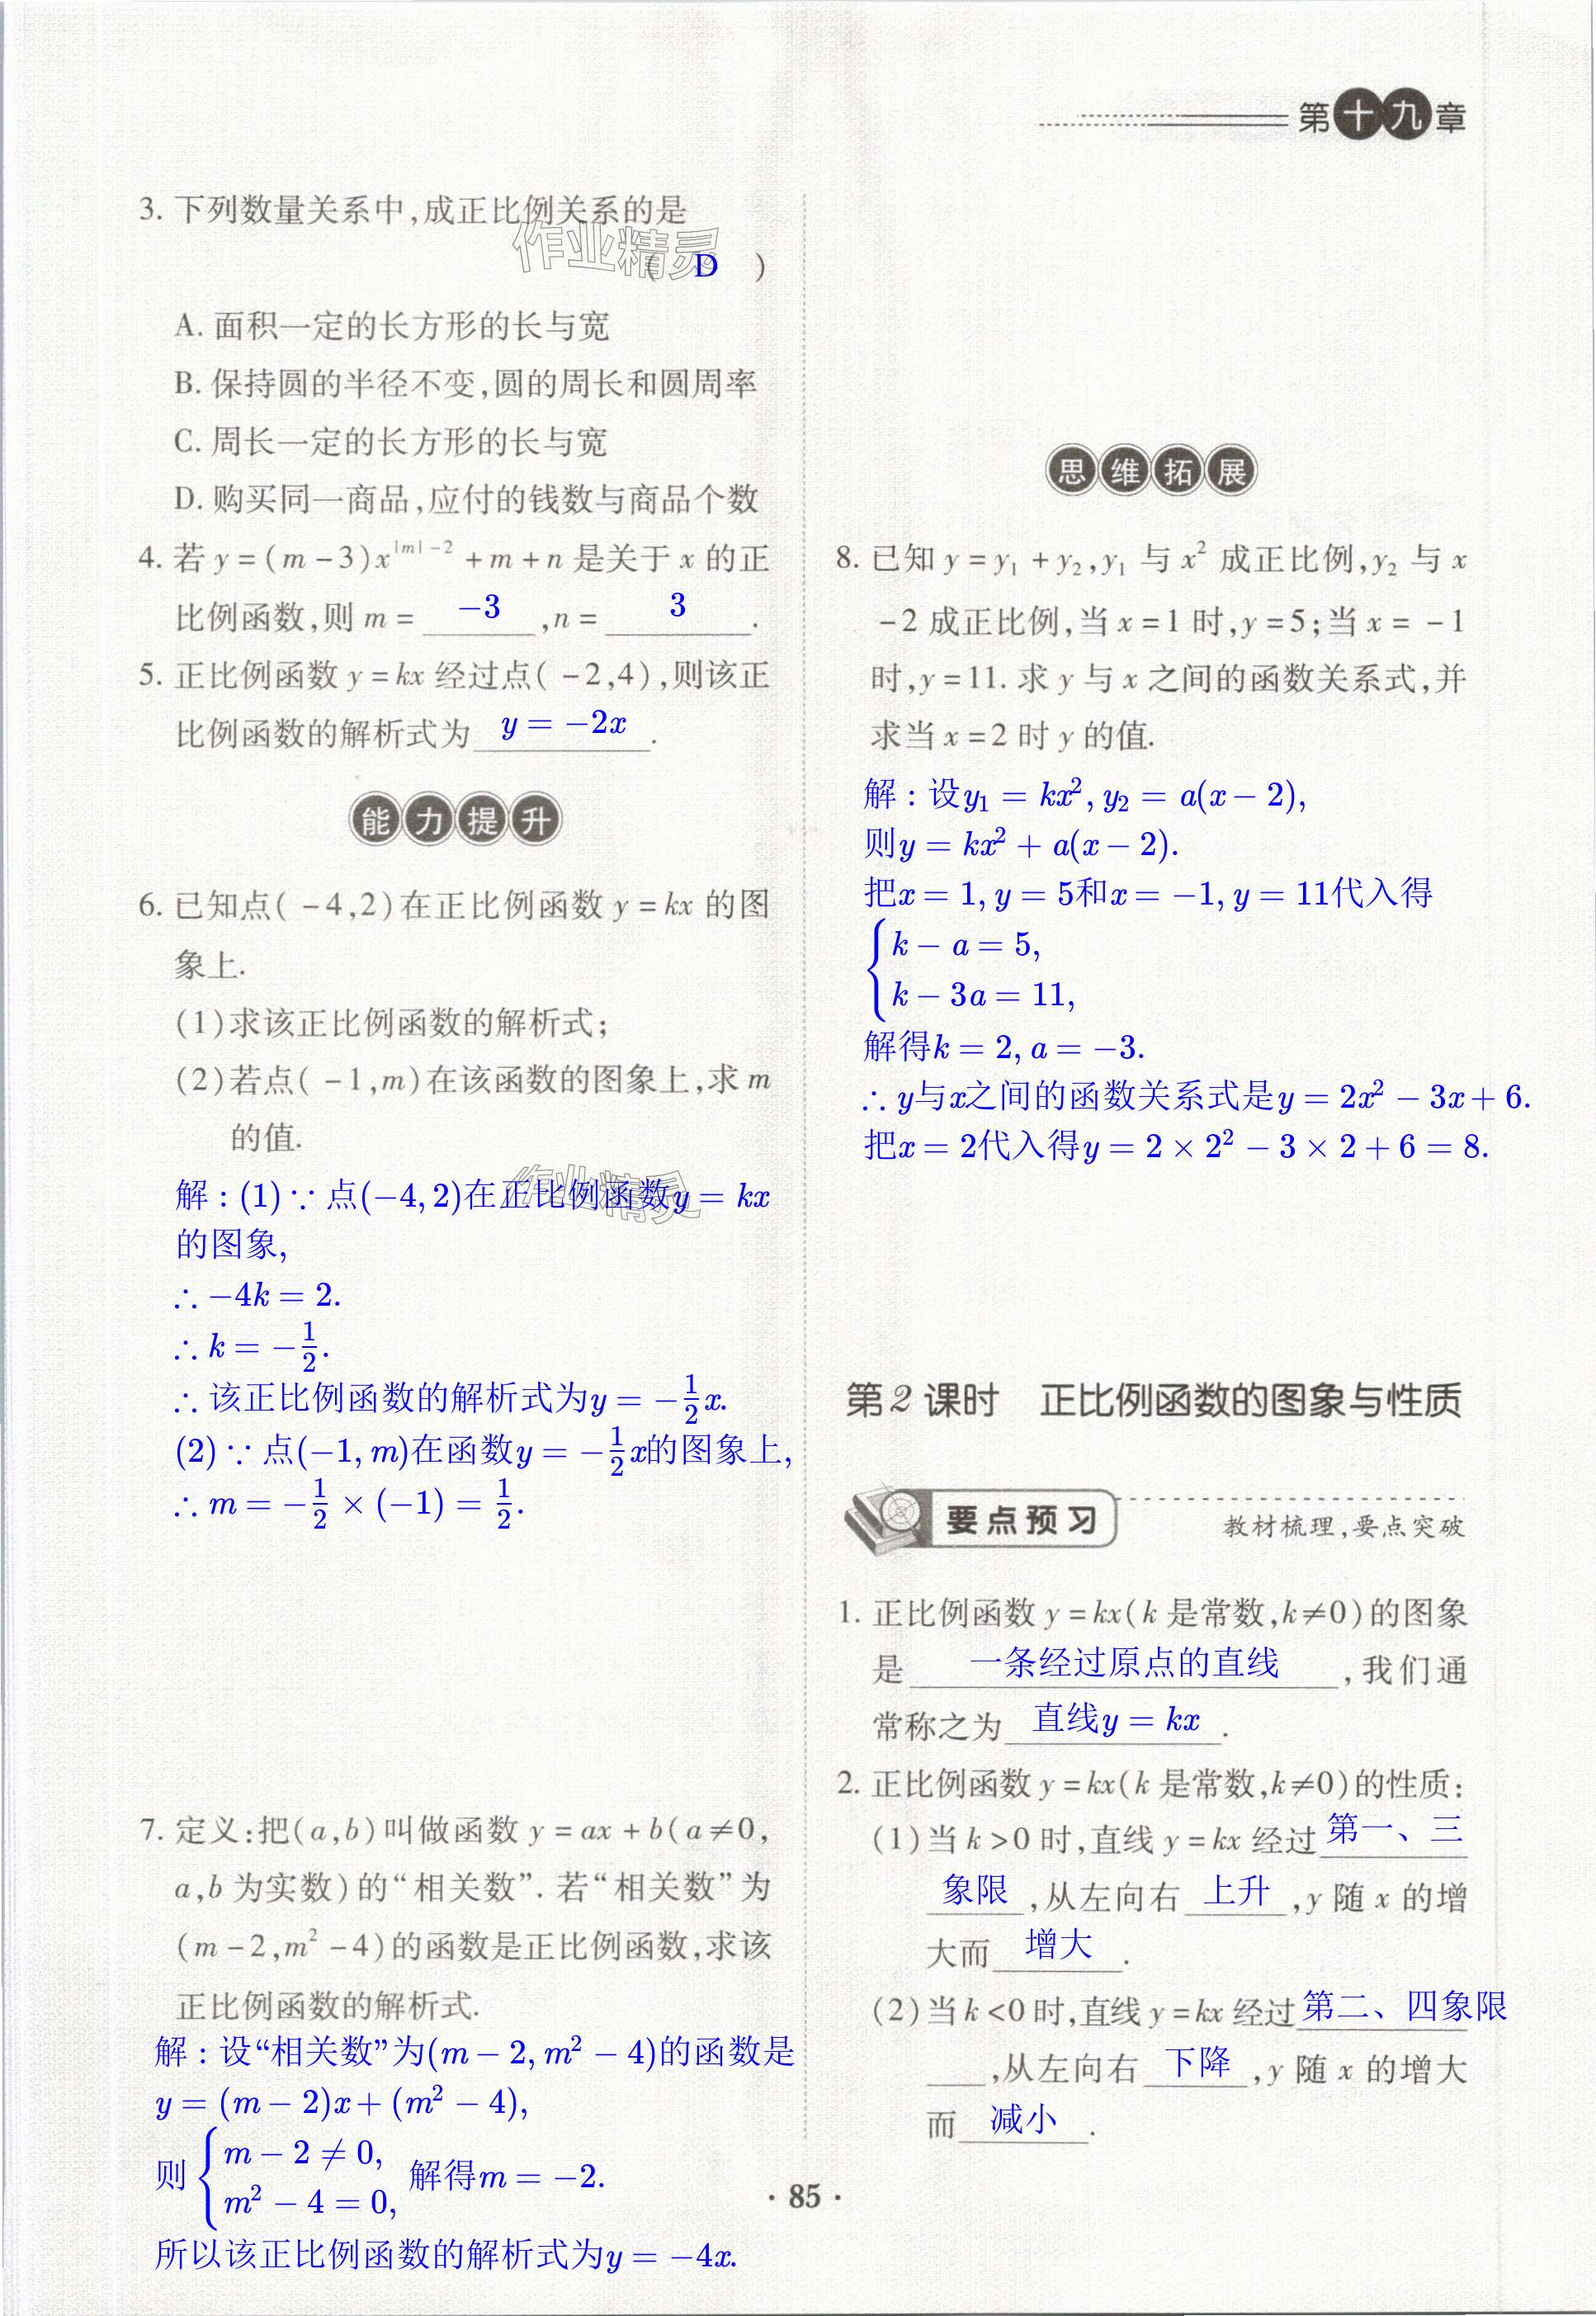 第十九章
3. 下列数量关系中,成正比例关系的是
( D )
A. 面积一定的长方形的长与宽
B. 保持圆的半径不变,圆的周长和圆周率
C. 周长一定的长方形的长与宽
D. 购买同一商品,应付的钱数与商品个数
4. 若 y=(m-3)x^{|m|-2}+m+n 是关于 x 的正
比例函数,则 m= -3 ,n= 3 .
5. 正比例函数 y=kx 经过点(-2,4),则该正
比例函数的解析式为 y=-2x .
能力提升
6. 已知点(-4,2)在正比例函数 y=kx 的图
象上.
(1)求该正比例函数的解析式;
(2)若点(-1,m)在该函数的图象上,求 m
的值.
解:(1)∵点(-4,2)在正比例函数y=kx
的图象,
∴-4k=2.
∴k=-1/2.
∴该正比例函数的解析式为y=-1/2x.
(2)∵点(-1,m)在函数y=-1/2x的图象上,
∴m=-1/2×(-1)=1/2.
7. 定义:把(a,b)叫做函数 y=ax+b(a≠0,
a,b 为实数)的“相关数”. 若“相关数”为
(m-2,m²-4)的函数是正比例函数,求该
正比例函数的解析式.
解:设“相关数”为(m-2,m²-4)的函数是
y=(m-2)x+(m²-4),
则{m-2≠0,
m²-4=0, 解得m=-2.
所以该正比例函数的解析式为y=-4x.
思维拓展
8. 已知 y=y₁+y₂,y₁ 与 x² 成正比例,y₂ 与 x
-2 成正比例,当 x=1 时,y=5;当 x=-1
时,y=11. 求 y 与 x 之间的函数关系式,并
求当 x=2 时 y 的值.
解:设y₁=kx²,y₂=a(x-2),
则y=kx²+a(x-2).
把x=1,y=5和x=-1,y=11代入得
{k-a=5,
k-3a=11,
解得k=2,a=-3.
∴y与x之间的函数关系式是y=2x²-3x+6.
把x=2代入得y=2×2²-3×2+6=8.
第2课时 正比例函数的图象与性质
要点预习 教材梳理,要点突破
1. 正比例函数 y=kx(k 是常数,k≠0)的图象
是 一条经过原点的直线 ,我们通
常称之为 直线y=kx .
2. 正比例函数 y=kx(k 是常数,k≠0)的性质:
(1)当 k>0 时,直线 y=kx 经过 第一、三
象限 ,从左向右 上升 ,y 随 x 的增
大而 增大 .
(2)当 k<0 时,直线 y=kx 经过 第二、四象限
,从左向右 下降 ,y 随 x 的增大
而 减小 .
·85·
作业精灵
作业精灵